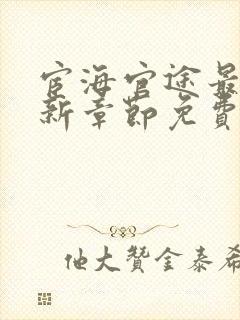 宦海官途最
新章节免费
他大赞金泰希